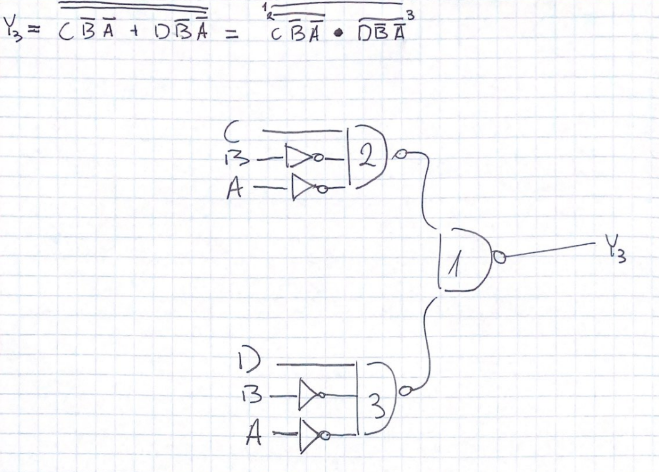 Y₃ = C B̅ A̅ + D B̅ A̅ = ¹ ² C B̅ A̅ • D B̅ A̅ ³
C
B
A
2
1
Y₃
D
B
A
3